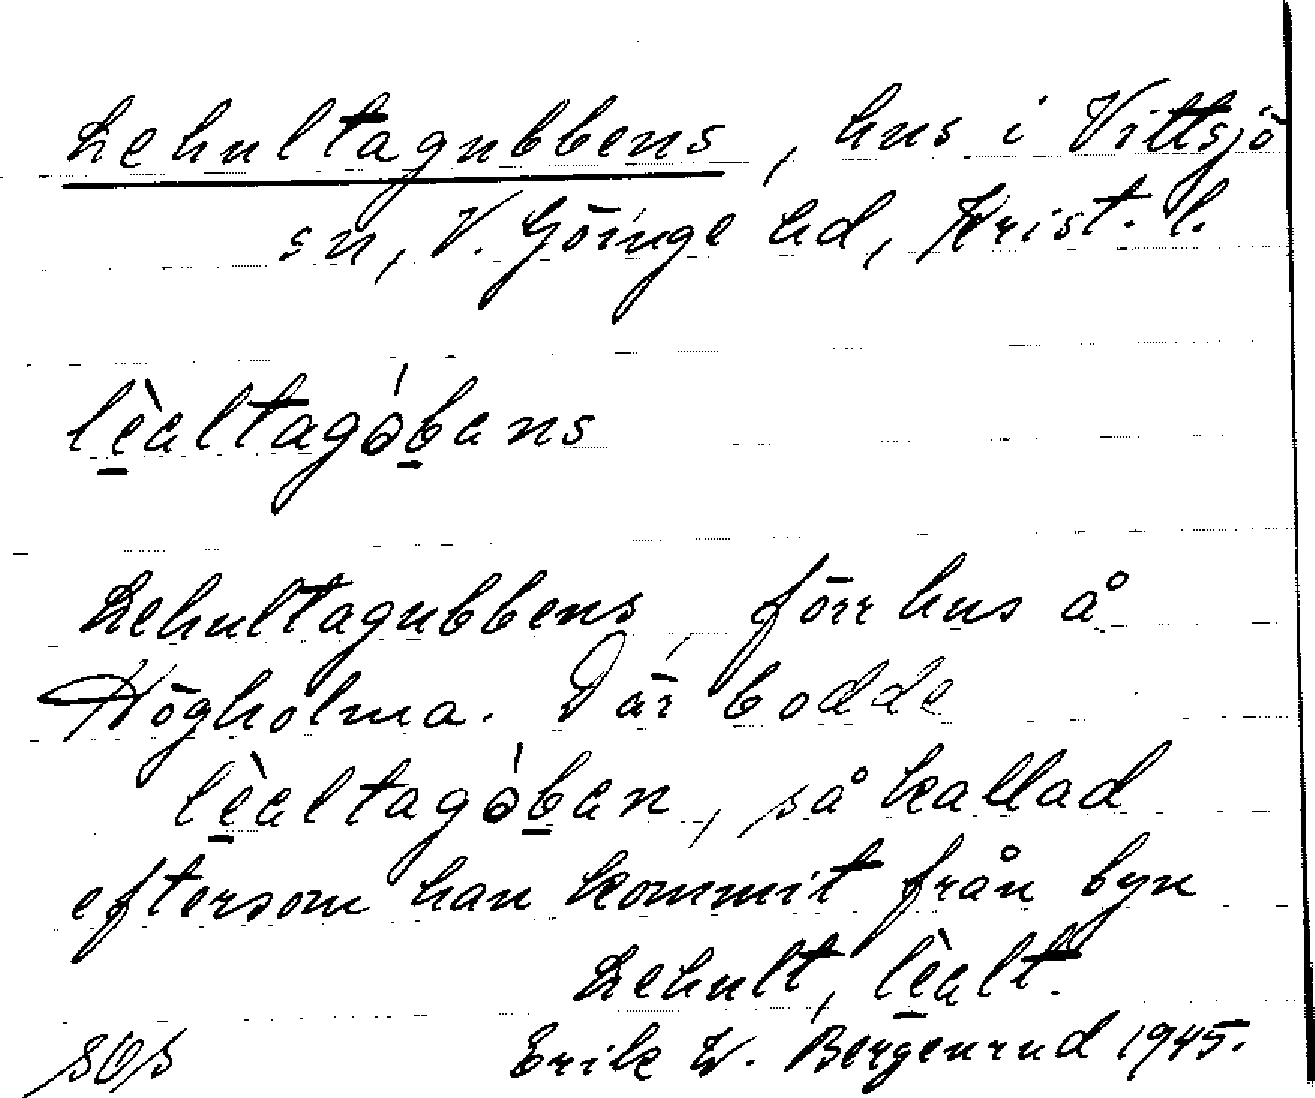 Lehultagubbens, hus i Vittsjö
sn, V. Göinge hd, Krist. l.
lèaltagóbans
Lehultagubbens, förr hus å
Högholma. Där bodde
lèaltagóban, så kallad
eftersom han kommit från byn
Lehult, lèalt.
Erik W. Bergenrud 1945.